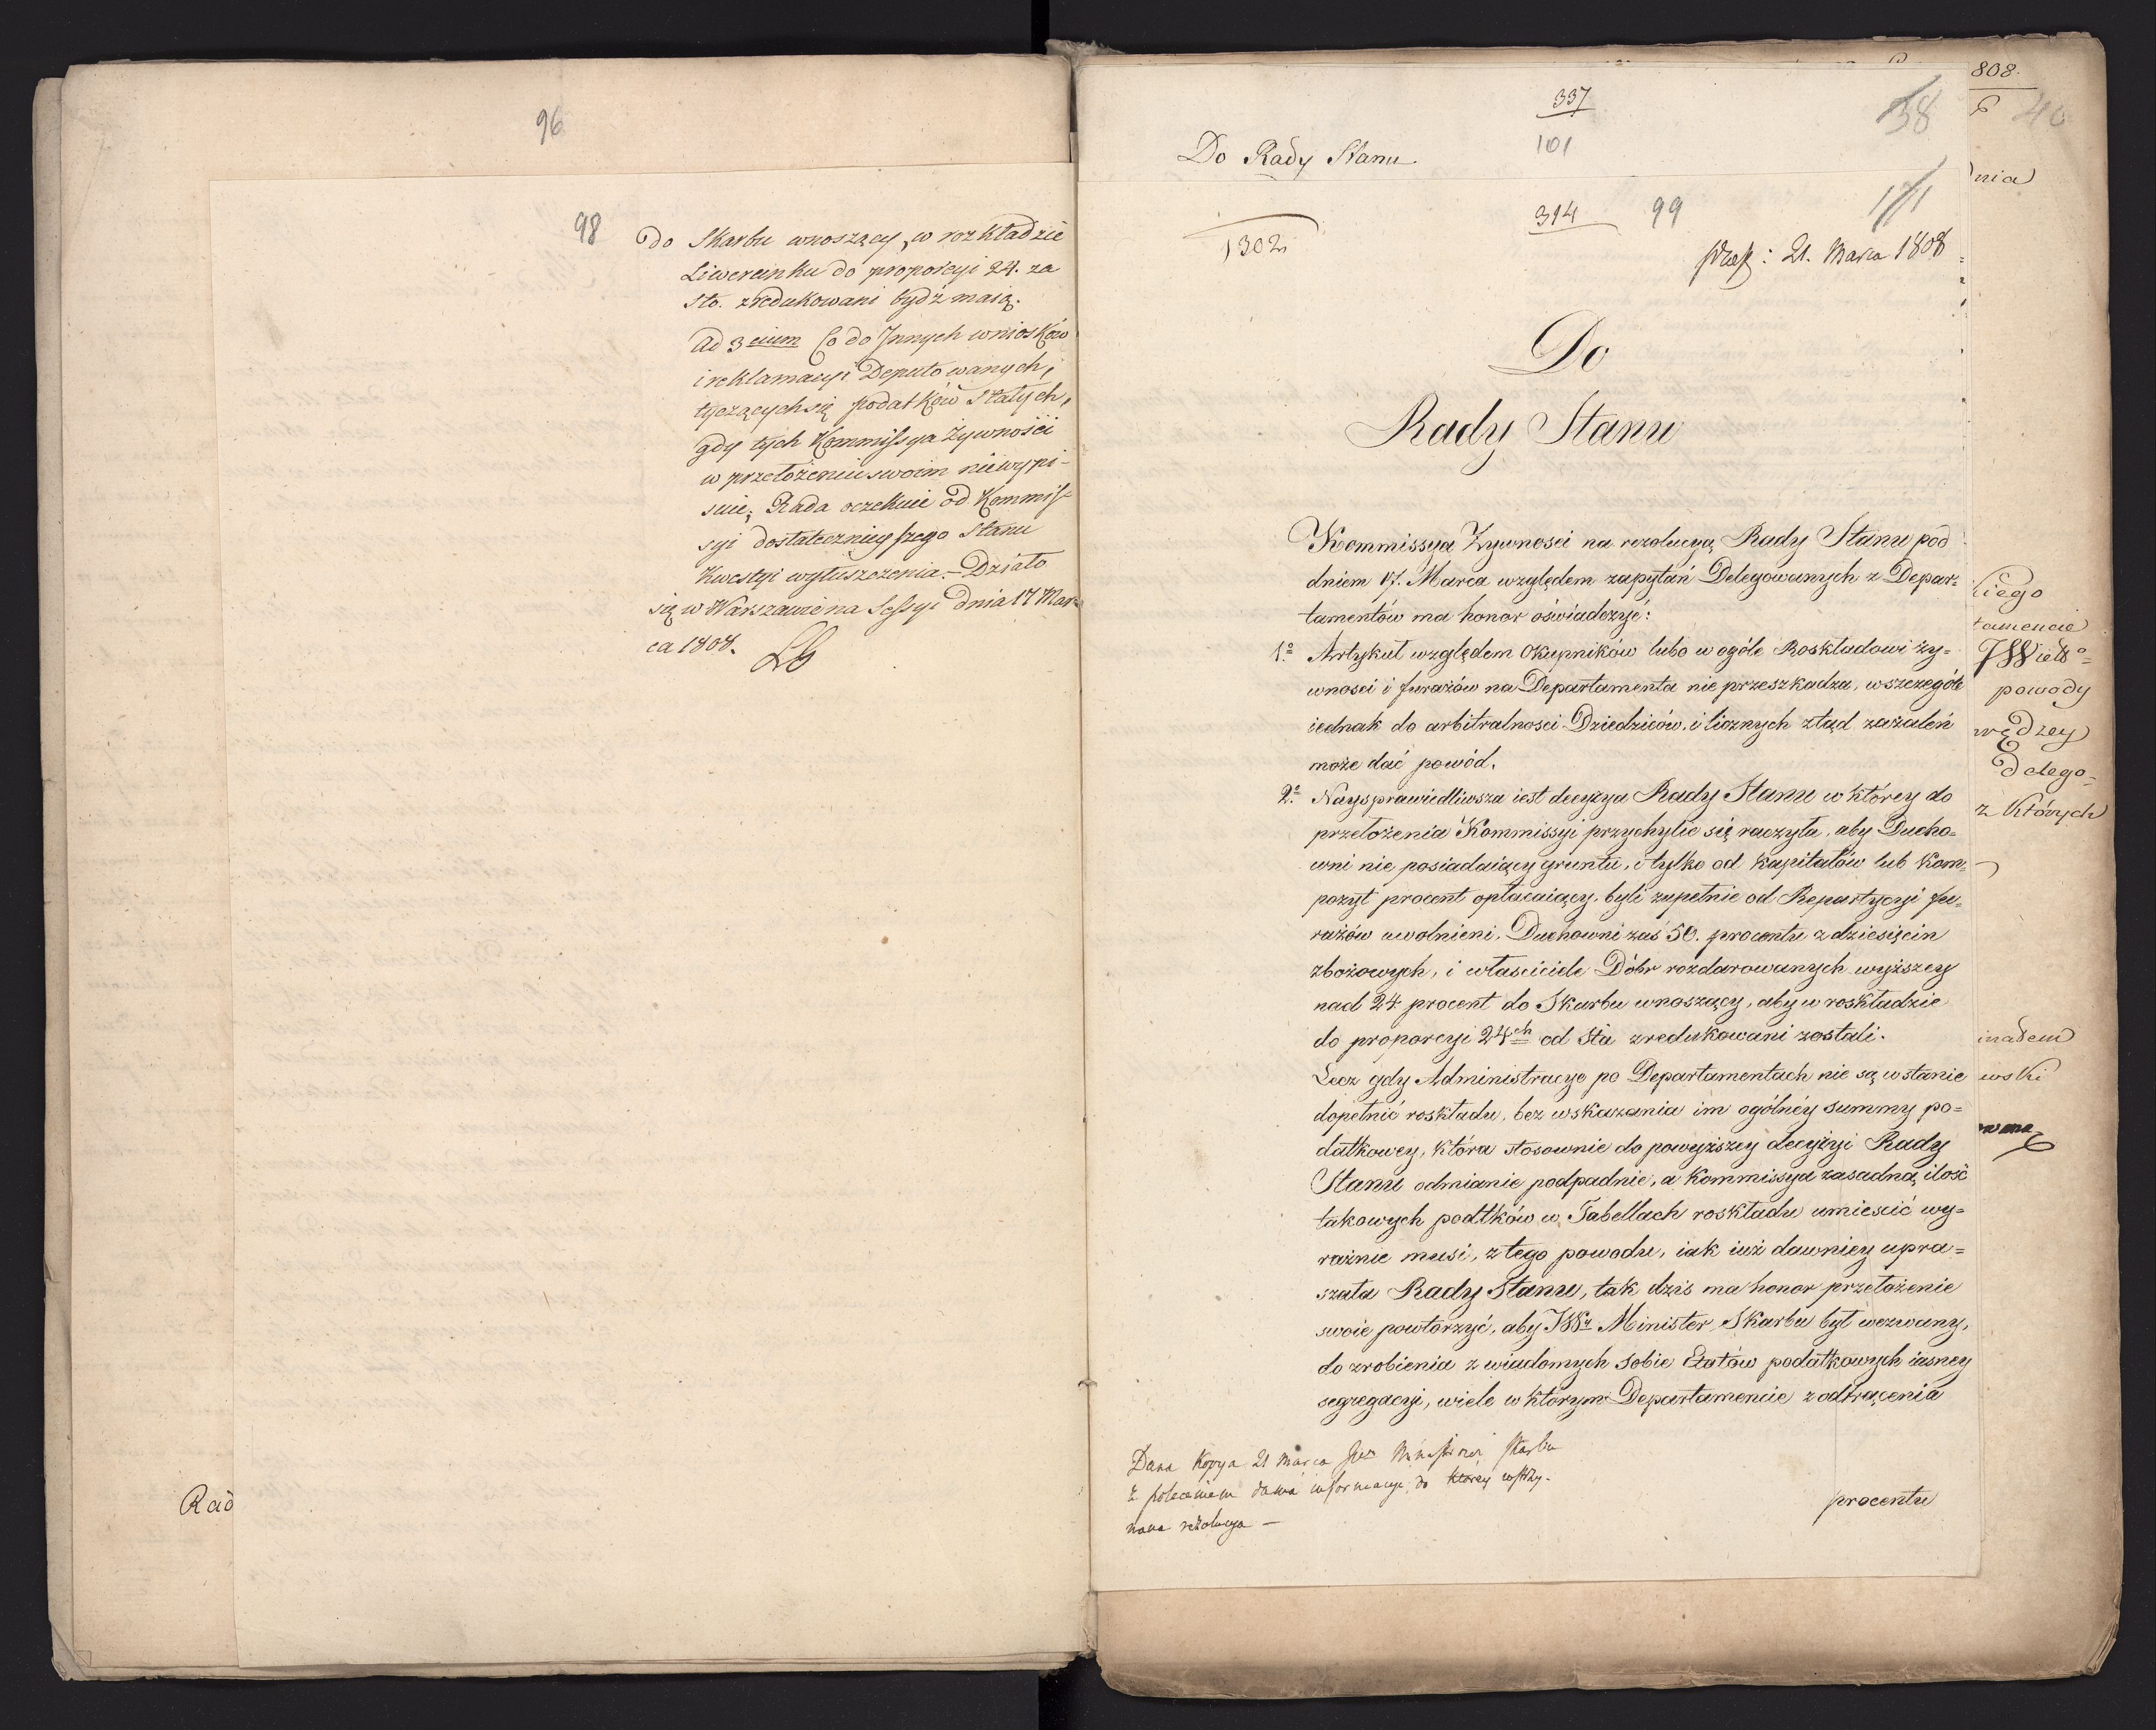 96
98
do Skarbu wnoszący, w rozkładzie
Liwerunku do proporcyi 24. za
sto. zredukowani bydź maią.
ad 3cium Co do Jnnych wniosków
i reklamacyi Deputowanych,
tyczących się podatków stałych,
gdy tych Kommissya Żywności
w przełożeniu swoim niewypi-
suie; Rada oczekuie od Kommis-
syi dostatecznieyszego Stanu
Kwestyi wyłuszczenia. – Działo
się w Warszawie na Sessyi dnia 17 Mar-
ca 1808.
Rad
337
101
38
Do Rady Stanu
1302
314
99
171
21. Marca 1808
Do
Rady Stanu
Kommissya Żywnosci na rezolucyą Rady Stanu pod
dniem 17. Marca względem zapytań Delegowanych z Depar=
tamentów ma honor oświadczyć:
1.o Artykuł względem Okupników lubo w ogóle Roskładowi ży=
wnosci i furażów na Departamenta nie przeszkadza, w szczególe
iednak do arbitralnosci Dziedziców, i licznych ztąd zażaleń
może dać powód.
2.o Nayspráwiedliwsza iest decyzya Rady Stanu w którey do
przełożenia Kommissyi przychylić się raczyła, aby Ducho=
wni nie posiadaiący gruntu, i tylko od kapitałów lub Kom=
pozyt procent opłacaiący, byli zupełnie od Repartycyi fu=
rażów uwolnieni, Duchowni zaś 50. procentu z dziesięcin
zbożowych, i właściciele Dóbr rozdarowanych wyższey
nad 24 procent do Skarbu wnoszący, aby w roskładzie
do proporcyi 24ch od Sta zredukowani zostali.
Lecz gdy Administracye po Departamentach nie są w stanie
dopełnić roskładu, bez wskazania im ogólnéy summy po=
datkowey, która stosownie do powyższey decyzyi Rady
Stanu odmianie podpadnie, a Kommissya zasadną ilość
takowych podtków w Tabellach roskładu umieścić wy=
raźnie musi, z tego powodu, iak iuż dawniey upra=
szała Rady Stanu, tak dziś ma honor przełożenie
swoie powtórzyć, aby JWy Minister Skarbu był wezwany,
do zrobienia z wiadomych sobie Etatów podatkowych iasney
segregacyi, wiele w którym Departamencie z odtrącenia
procentu
Dana Kopya 21 Marca JWu Ministrowi Skarbu
z poleceniem dania informacyi, do którey wstrzy-
mana rezolucya –
808.
6
40
nia
kiego
tamencie
powody
wędzey
Delego=
z których
inadem
wski